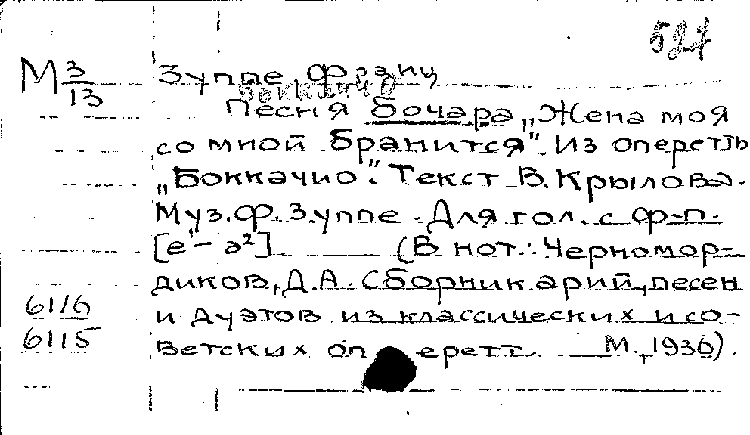 527
М 3/13 Зуппе, Франц
Боккаччо
Песня бочара „Жена моя
со мной бранится". Из оперетты
„Боккачио". Текст В. Крылова.
Муз. Ф. Зуппе. Для гол. с ф-п.
[e¹ - a²] (В нот.: Черномор-
диков, Д.А. Сборник арий, песен
и дуэтов из классических и со-
ветских оперетт. М., 1936).
6116
6115